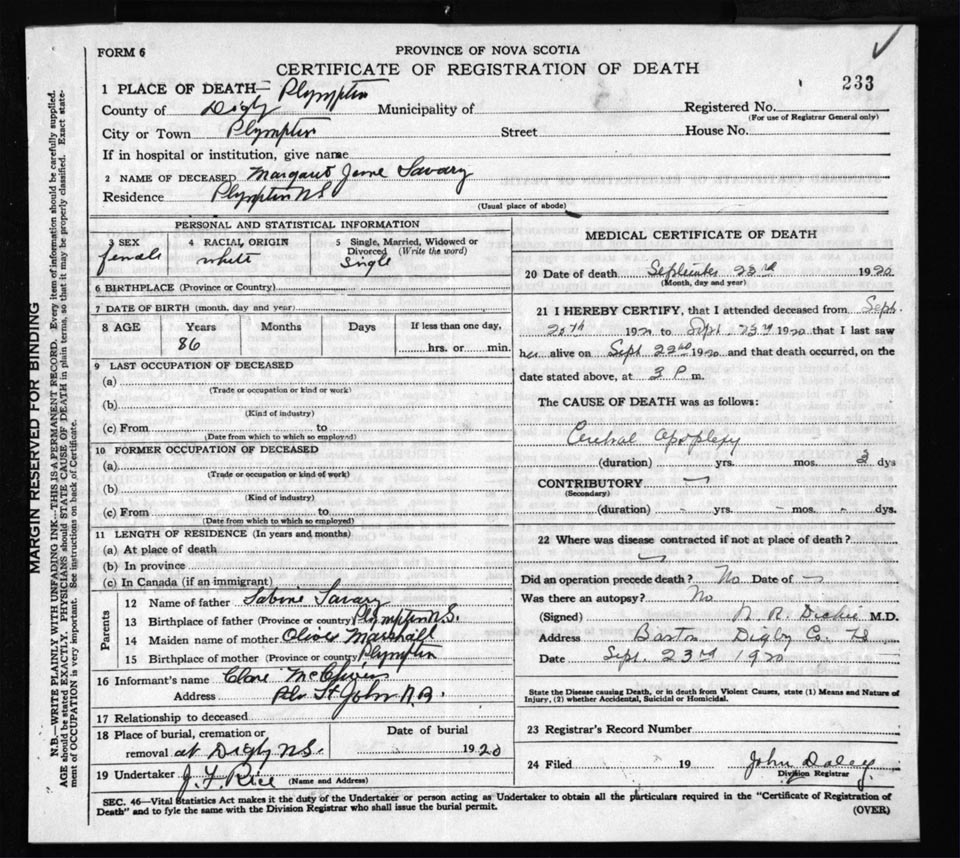 FORM 6
PROVINCE OF NOVA SCOTIA
CERTIFICATE OF REGISTRATION OF DEATH
233
1 PLACE OF DEATH— Plympton
County of Digby Municipality of Registered No.
(For use of Registrar General only)
City or Town Plympton Street House No.
If in hospital or institution, give name
2 NAME OF DECEASED Margaret Jane Savary
Residence Plympton N S
(Usual place of abode)
PERSONAL AND STATISTICAL INFORMATION
3 SEX 4 RACIAL ORIGIN 5 Single, Married, Widowed or Divorced (Write the word)
female white Single
6 BIRTHPLACE (Province or Country)
7 DATE OF BIRTH (month, day and year)
8 AGE Years Months Days If less than one day,
86 hrs. or min.
9 LAST OCCUPATION OF DECEASED
(a)
(Trade or occupation or kind or work)
(b)
(Kind of industry)
(c) From to
(Date from which to which so employed)
10 FORMER OCCUPATION OF DECEASED
(a)
(Trade or occupation or kind of work)
(b)
(Kind of industry)
(c) From to
(Date from which to which so employed)
11 LENGTH OF RESIDENCE (In years and months)
(a) At place of death
(b) In province
(c) In Canada (if an immigrant)
Parents
12 Name of father Sabine Savary
13 Birthplace of father (Province or country) Plympton N.S.
14 Maiden name of mother Olive Marshall
15 Birthplace of mother (Province or country) Plympton
16 Informant's name Clare
Address St John N.B.
17 Relationship to deceased
18 Place of burial, cremation or Date of burial
removal at Digby N.S. 1920
19 Undertaker J. F. Rice
(Name and Address)
MEDICAL CERTIFICATE OF DEATH
20 Date of death September 23rd 1920
(Month, day and year)
21 I HEREBY CERTIFY, that I attended deceased from Sept.
20th 1920 to Sept 23rd 1920 that I last saw
her alive on Sept 22nd 1920 and that death occurred, on the
date stated above, at 3 P m.
The CAUSE OF DEATH was as follows:
Cerebral apoplexy
(duration) yrs. mos. 3 dys
CONTRIBUTORY
(Secondary)
(duration) - yrs. - mos. - dys.
22 Where was disease contracted if not at place of death?
Did an operation precede death? No Date of -
Was there an autopsy? No
(Signed) N. R. Dickie M.D.
Address Barton Digby Co. NS
Date Sept. 23rd 1920
State the Disease causing Death, or in death from Violent Causes, state (1) Means and Nature of
Injury, (2) whether Accidental, Suicidal or Homicidal.
23 Registrar's Record Number
24 Filed 19 John Daley
Division Registrar
SEC. 46—Vital Statistics Act makes it the duty of the Undertaker or person acting as Undertaker to obtain all the particulars required in the "Certificate of Registration of
Death" and to fyle the same with the Division Registrar who shall issue the burial permit.
(OVER)
MARGIN RESERVED FOR BINDING
N.B.—WRITE PLAINLY WITH UNFADING INK—THIS IS A PERMANENT RECORD. Every item of information should be carefully supplied.
AGE should be stated EXACTLY. PHYSICIANS should STATE CAUSE OF DEATH in plain terms, so that it may be properly classified. Exact state-
ment of OCCUPATION is very important. See instructions on back of Certificate.